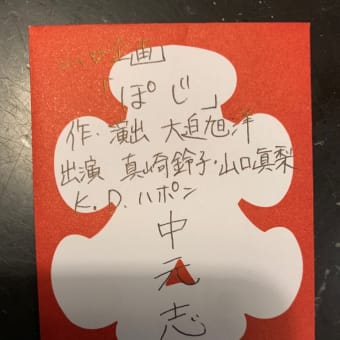 画
「ぽじ」
作・演出 大迫旭洋
出演 真崎鈴子・山口眞梨
K.D.ハポン
中元志